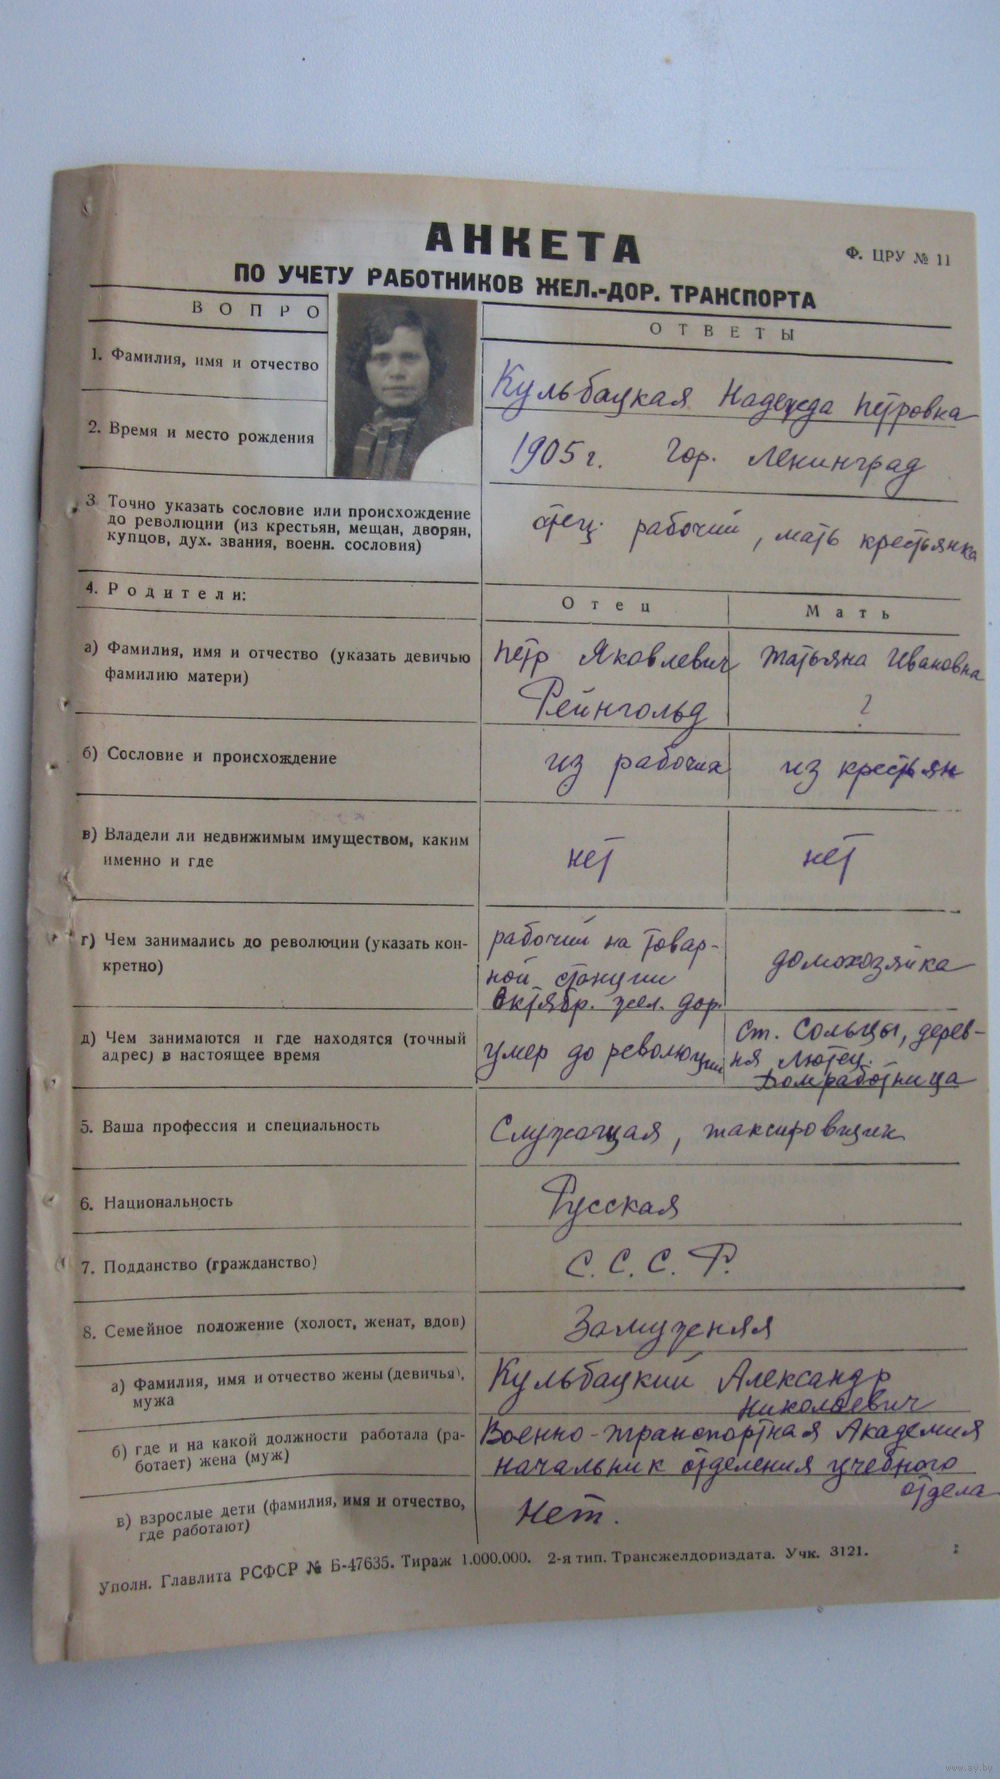 АНКЕТА
Ф. ЦРУ № 11
ПО УЧЕТУ РАБОТНИКОВ ЖЕЛ.-ДОР. ТРАНСПОРТА
ВОПРО
ОТВЕТЫ
1. Фамилия, имя и отчество
Кульбацкая Надежда Петровна
2. Время и место рождения
1905 г. Гор. Ленинград
3 Точно указать сословие или происхождение
до революции (из крестьян, мещан, дворян,
купцов, дух. звания, военн. сословия)
отец рабочий, мать крестьянка
4. Родители:
Отец
Мать
а) Фамилия, имя и отчество (указать девичью
фамилию матери)
Петр Яковлевич
Рейнгольд
Татьяна Ивановна
?
б) Сословие и происхождение
из рабочих
из крестьян
в) Владели ли недвижимым имуществом, каким
именно и где
нет
нет
г) Чем занимались до революции (указать кон-
кретно)
рабочий на товар-
ной станции
Октябр. жел. дор.
домохозяйка
д) Чем занимаются и где находятся (точный
адрес) в настоящее время
умер до революции
ст. Сольцы, дерев-
ня Лютец.
Домработница
5. Ваша профессия и специальность
Служащая, таксировщик
6. Национальность
Русская
7. Подданство (гражданство)
С. С. С. Р.
8. Семейное положение (холост, женат, вдов)
Замужняя
а) Фамилия, имя и отчество жены (девичья),
мужа
Кульбацкий Александр
Николаевич
б) где и на какой должности работала (ра-
ботает) жена (муж)
Военно-транспортная Академия
начальник отделения учебного
отдела
в) взрослые дети (фамилия, имя и отчество,
где работают)
Нет.
Уполн. Главлита РСФСР № Б-47635. Тираж 1.000.000. 2-я тип. Трансжелдориздата. Учк. 3121.
www.ay.by